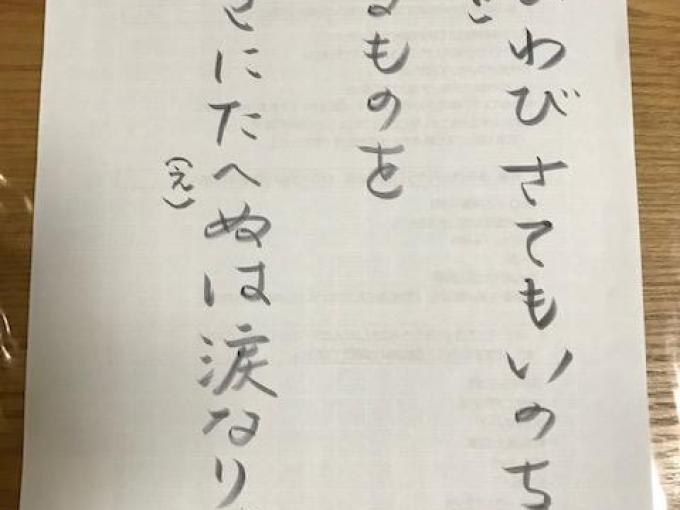 わび さてもいのち
るものを
にたへぬは涙なり
(え)